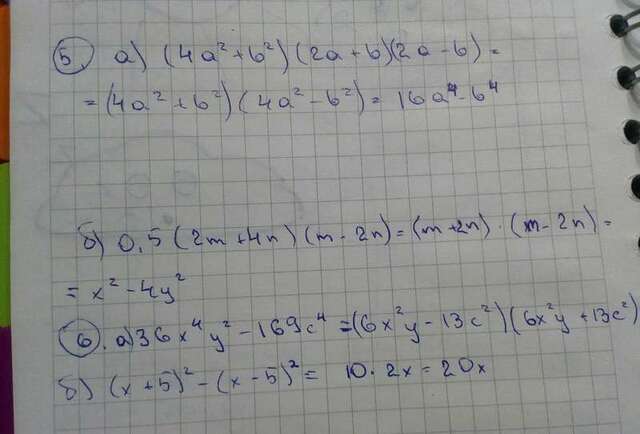 5. а) (4a² + b²)(2a + b)(2a - b) =
= (4a² + b²)(4a² - b²) = 16a⁴ - b⁴
б) 0,5 (2m + 4n)(m - 2n) = (m + 2n) · (m - 2n) =
= x² - 4y²
6. а) 36x⁴y² - 169c⁴ = (6x²y - 13c²)(6x²y + 13c²)
б) (x + 5)² - (x - 5)² = 10 · 2x = 20x